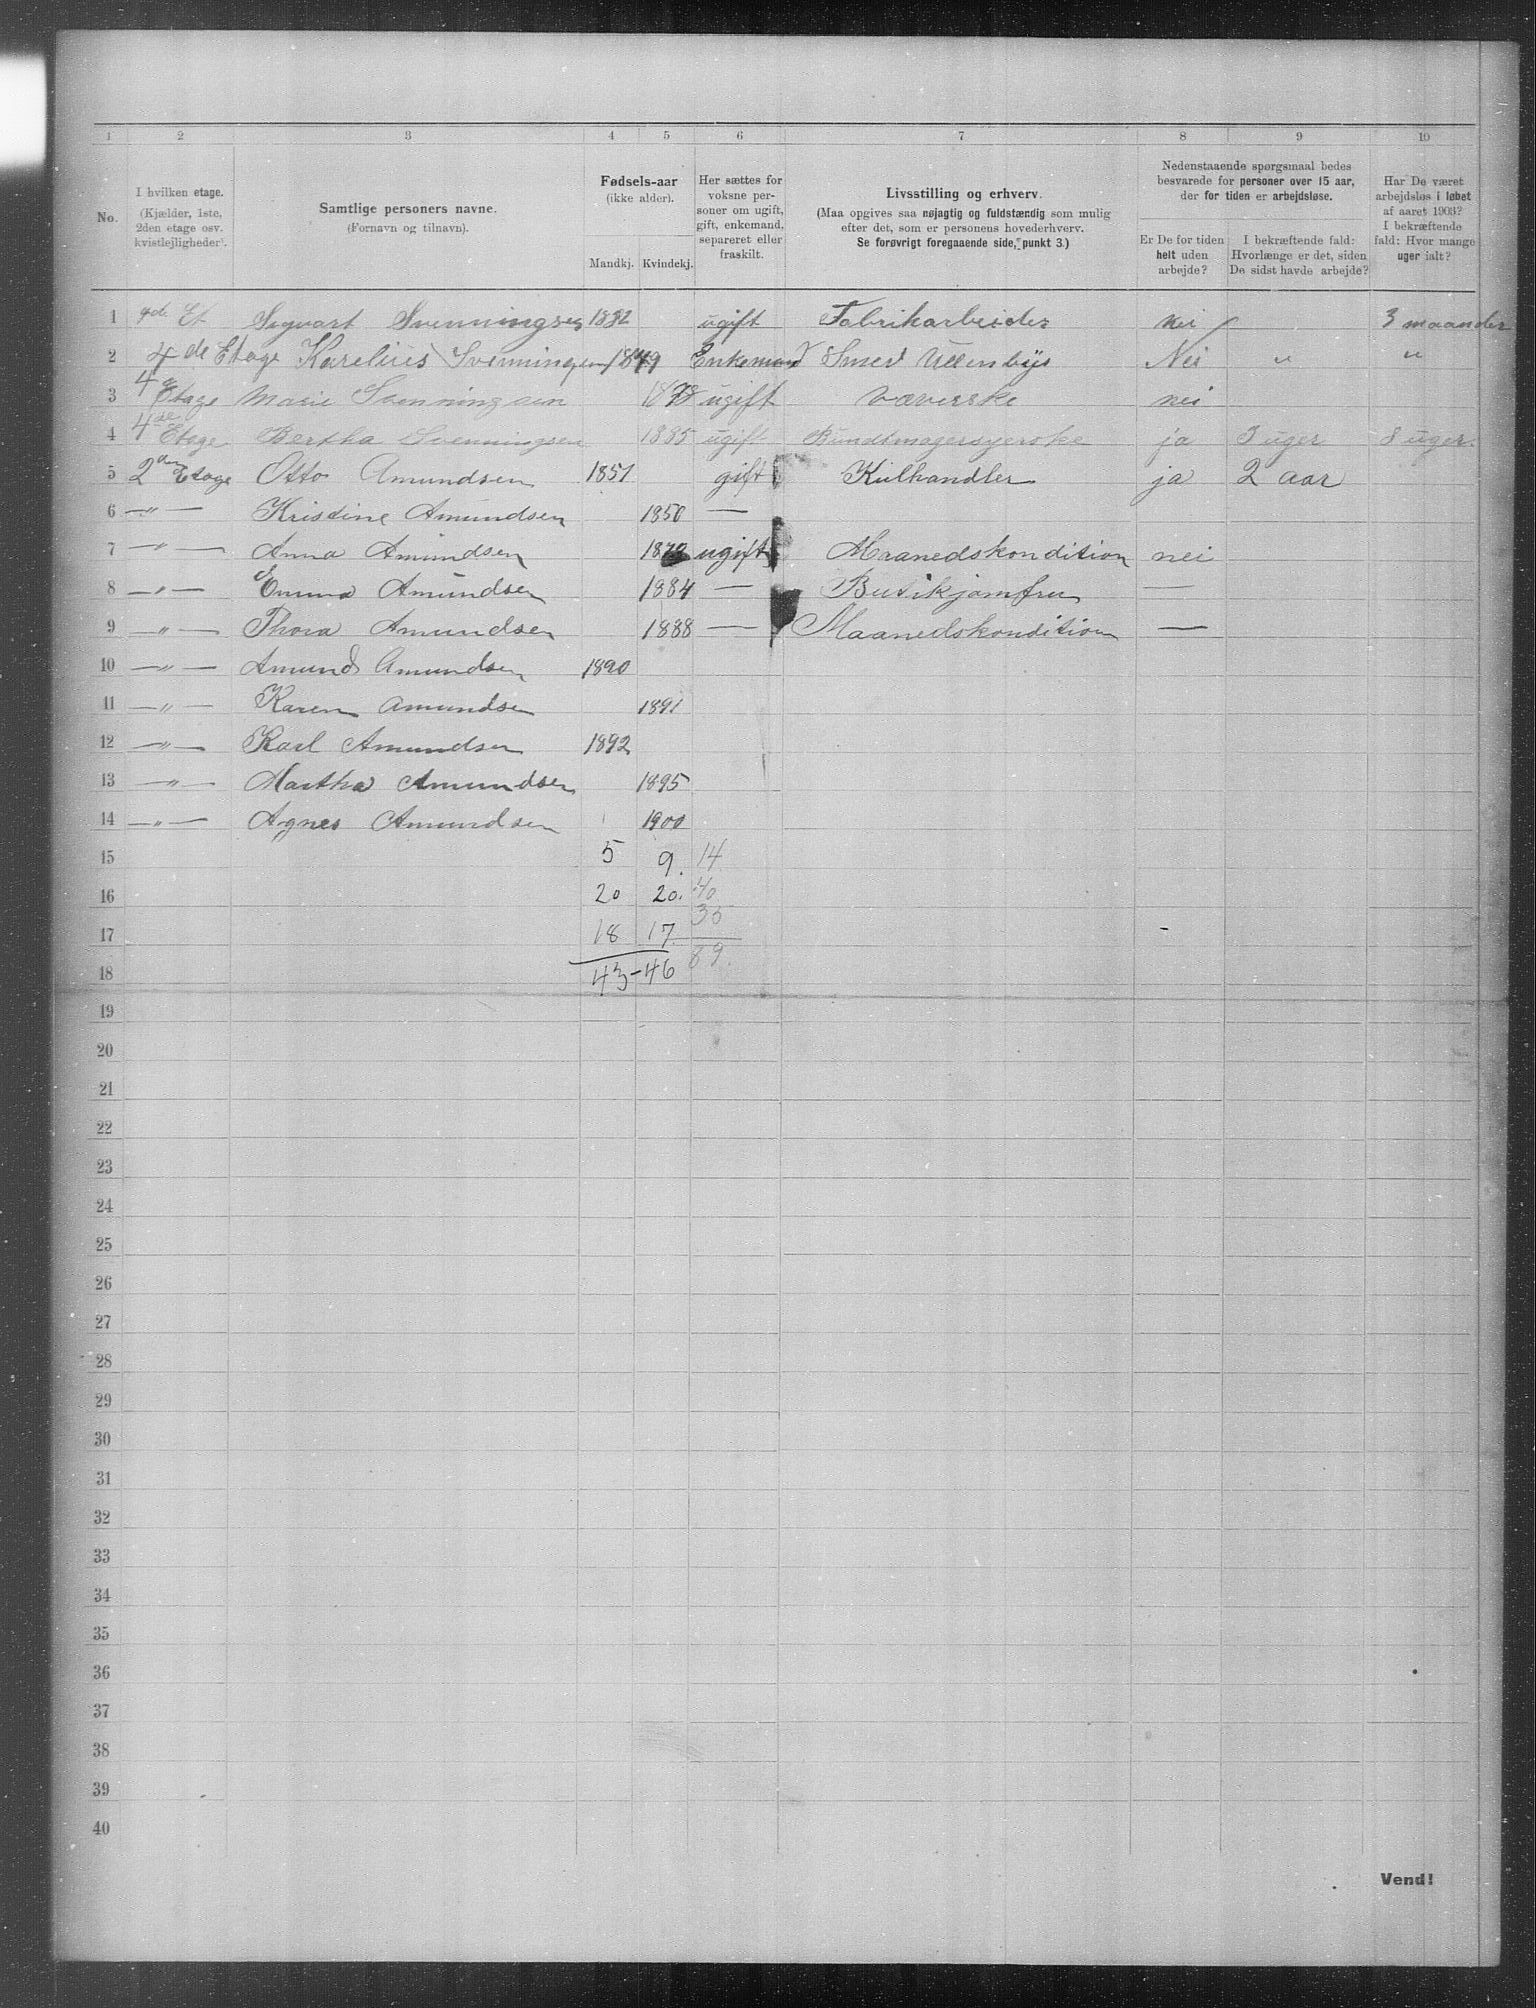 1 2 3 4 5 6 7 8 9 10
No.
I hvilken etage.
(Kjælder, 1ste,
2den etage osv.
kvistlejligheder).
Samtlige personers navne.
(Fornavn og tilnavn).
Fødsels-aar
(ikke alder).
Mandkj. Kvindekj.
Her sættes for
voksne per-
soner om ugift,
gift, enkemand,
separeret eller
fraskilt.
Livsstilling og erhverv.
(Maa opgives saa nøjagtig og fuldstændig som mulig
efter det, som er personens hovederhverv.
Se forøvrigt foregaaende side, punkt 3.)
Nedenstaaende spørgsmaal bedes
besvarede for personer over 15 aar,
der for tiden er arbejdsløse.
Er De for tiden
helt uden
arbejde?
I bekræftende fald:
Hvorlænge er det, siden
De sidst havde arbejde?
Har De været
arbejdsløs i løbet
af aaret 1903?
I bekræftende
fald: Hvor mange
uger ialt?
1 4de Et Sigvart Svenningsen 1882 ugift Fabrikarbeider nei 3 maaneder
2 4de Etage Karelius Svenningsen 1849 Enkemand Smed Nei " "
3 4de Etage Marie Svenningsen 1878 ugift Væverske nei
4 4de Etage Bertha Svenningsen 1885 ugift Bundtmagersyerske ja 3 uger 8 uger.
5 2den Etage Otto Amundsen 1851 gift Kulhandler ja 2 aar
6 —"— Kristine Amundsen 1850 —
7 —"— Anna Amundsen ugift Maanedskondition nei
8 —"— Emma Amundsen 1884 — Butikjomfru —
9 —"— Thora Amundsen 1888 — Maanedskondition —
10 —"— Amund Amundsen 1890
11 —"— Karen Amundsen 1891
12 —"— Karl Amundsen 1892
13 —"— Martha Amundsen 1895
14 —"— Agnes Amundsen 1900
15 5 9. 14
16 20 20. 40
17 18 17 35
18 43-46 89.
19
20
21
22
23
24
25
26
27
28
29
30
31
32
33
34
35
36
37
38
39
40
Vend!